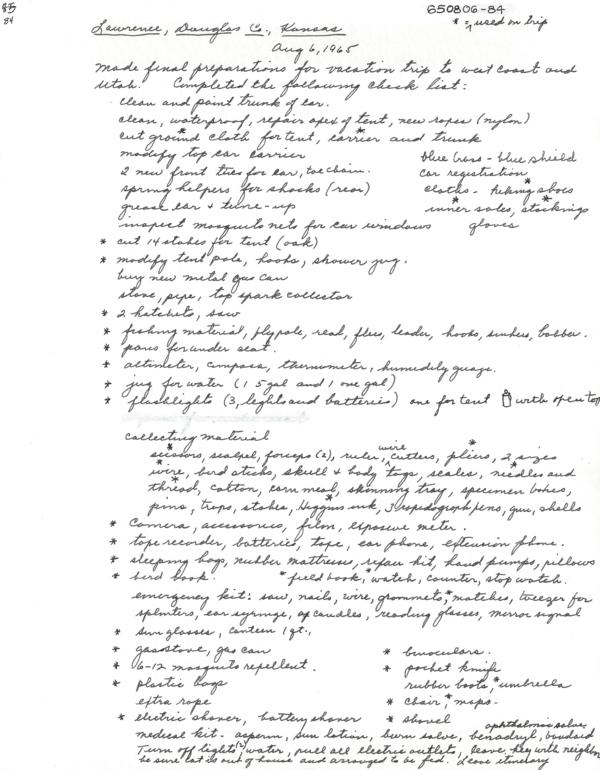 85
84
650806-84
* = used on trip
Lawrence, Douglas Co., Kansas
Aug 6, 1965
Made final preparations for vacation trip to west coast and
Utah. Completed the following check list:
clean and paint trunk of car.
clean, waterproof, repair apex of tent, new ropes (nylon)
cut ground* cloth for tent, carrier* and trunk
modify top car carrier
blue cross - blue shield
2 new front tires for car, toe chain.
car registration
spring helpers for shocks (rear)
clothes - hiking* shoes
grease car + tune-up
inner* soles, stockings*
inspect mosquito nets for car windows
gloves
* cut 14 stakes for tent (oak)
* modify tent pole, hooks, shower jug.
buy new metal gas can
stove, pipe, top spark collector
* 2 hatchets, saw
* fishing material, fly pole, real, flies, leader, hooks, sinkers, bobber.
* pans for under seat.
* altimeter, compass, thermometer, humidity guage.
* jug for water (1 5 gal and 1 one gal)
* flashlights (3, lights and batteries) one for tent with open top
collecting material
scissors, scalpel, forceps (2), ruler, wire cutters, pliers*, 2 sizes
wire*, bird sticks, skull + body tags, scales, needles* and
thread*, cotton, corn meal, skinning tray, specimen boxes,
pins, traps, stakes, Higgins* ink, 3 rapidograph pens, gun, shells
* camera, accessories, film, exposure meter.
* tape recorder, batteries, tape, ear phone, extension phone.
* sleeping bags, rubber mattress, repair kit, hand pumps, pillows
* bird book. * field book, * watch, counter, stop watch.
emergency kit: saw, nails, wire, grommets, * matches, tweezer for
splinters, ear syringe, candles, reading glasses, mirror signal
* sun glasses, canteen 1 qt.,
* gas stove, gas can
* binoculars.
* 6-12 mosquito repellent.
* pocket knife
* plastic bags
rubber boots, * umbrella
extra rope
* chair, * maps.
* electric shaver, battery shaver
* shovel
medical kit - asperin, sun lotion, burn salve, ophthalmic salve, benadryl, bandaid
Turn off lights, water, pull all electric outlets, leave key with neighbor
be sure cat is out of house and arranged to be fed. Leave itinerary